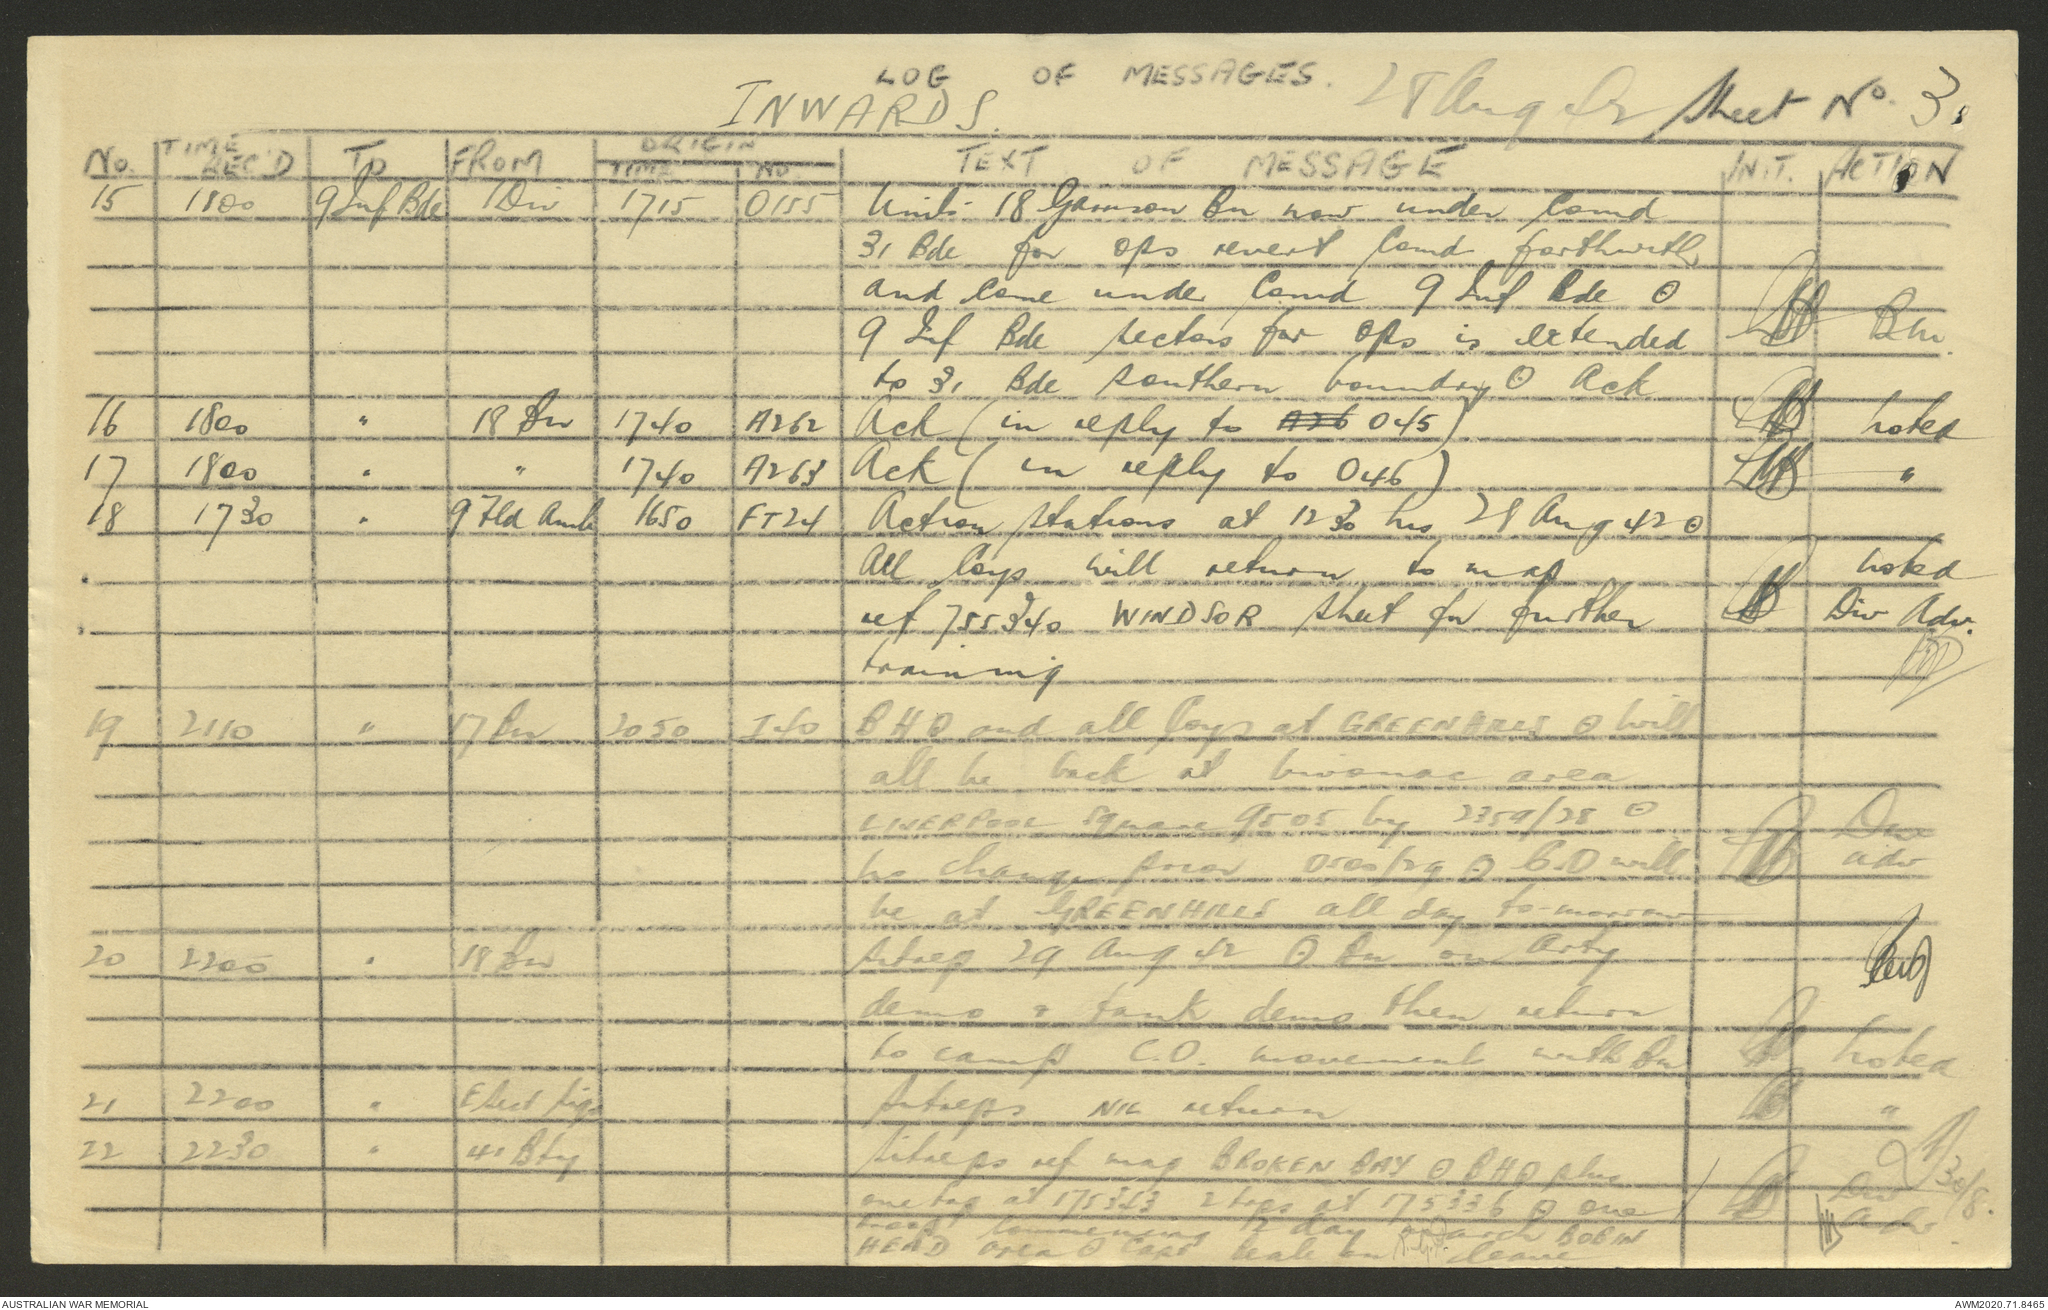 LOG OF MESSAGES.
INWARDS. 28 Aug 42 Sheet No. 3.
No. TIME REC'D TO FROM ORIGIN TIME NO. TEXT OF MESSAGE INIT. ACTION
15 1800 9 Inf Bde 1 Div 1715 O155 Unit 18 Garrison Bn now under Comd
31 Bde for ops revert Comd forthwith
and come under Comd 9 Inf Bde ⊙
9 Inf Bde sectors for ops is extended
to 31 Bde southern boundry ⊙ Ack
16 1800 " 18 Bn 1740 A262 Ack (in reply to A26 O45) noted
17 1800 " " 1740 A263 Ack (in reply to O46) "
18 1730 " 9 Fld Amb 1650 FT24 Action stations at 1230 hrs 28 Aug 42 ⊙
All Coys will return to map noted
ref 755340 WINDSOR sheet for further Div Adv.
training
19 2110 " 17 Bn 2050 I40 BHQ and all Coys at GREENHILLS ⊙ Will
all be back at bivouac area
LIVERPOOL Square 9505 by 2359/28 ⊙ Div
no change prior 0500/29 ⊙ C.O will adv
be at GREENHILLS all day to-morrow
20 2200 " 18 Bn Sitrep 29 Aug 42 ⊙ Bn on Arty
demo & tank demo then return
to camp C.O. movements with Bn noted
21 2200 " Sect Sigs Sitreps NIL return "
22 2230 " 41 Bty Sitreps ref map BROKEN BAY ⊙ BHQ plus
one trp at 175343 2 trps at 175336 ⊙ one Div
commencing 2 day BOBIN Adv. 30/8.
HEAD area ⊙ Capt leave
AUSTRALIAN WAR MEMORIAL AWM2020.71.8465